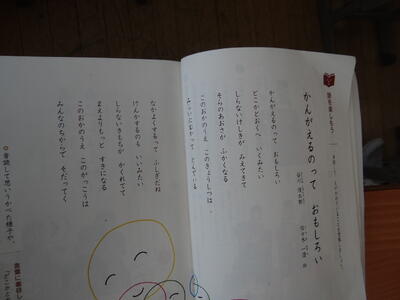 詩を楽しもう
かんがえるのって　おもしろい
谷川　俊太郎
かんがえるのって　おもしろい
どこかとおくへ　いくみたい
しらないけしきが　みえてきて
そらのあおさが　ふかくなる
このおかのうえ　このきょうしつは
みらいにむかって　とんでいる
なかよくするって　ふしぎだね
けんかするのも　いいみたい
しらないきもちが　かくれてて
まえよりもっと　すきになる
このおかのうえ　このがっこうは
みんなのちからで　そだってく
音読して思いうかべた様子や、
言葉に着目し
「どこかとお